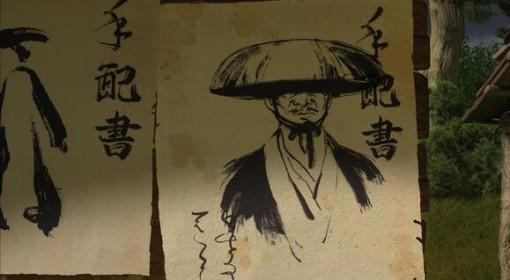 手配書
手配書